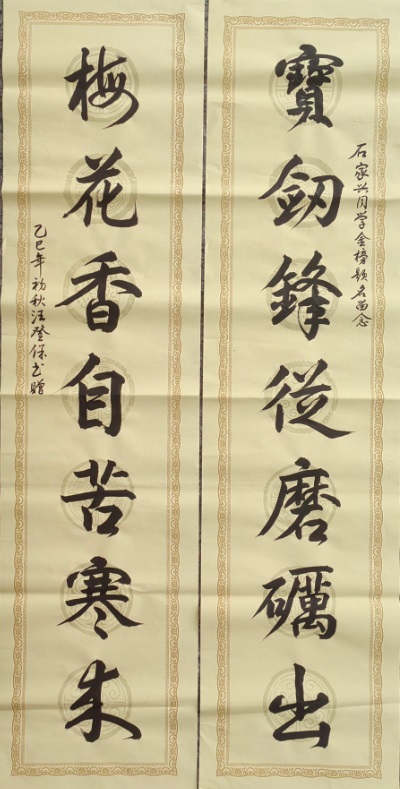 寶劔鋒從磨礪出
石家兴同学金榜题名留念
梅花香自苦寒来
乙巳年初秋汪登保书赠